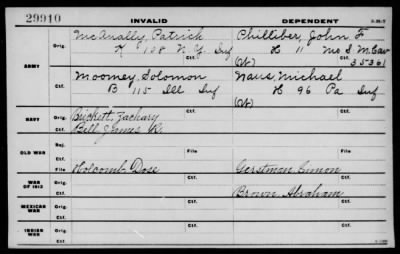 29910
INVALID
DEPENDENT
ARMY
Orig. McAnally, Patrick
K 108 N.Y. Inf
Philliber, John F.
H 11 Mo S.M. Cav
Ctf. (W) 35361
Orig. Mooney, Solomon
B 115 Ill Inf
Naus, Michael
H 96 Pa Inf
Ctf. (W)
NAVY
Orig. Brickett, Zachary
Ctf. Bell, James R.
Orig.
Ctf.
OLD WAR
Rej.
Ctf. File File
WAR OF 1812
File Holcomb, Dose
Gerstman, Simon
Ctf. Ctf.
Brown, Abraham
MEXICAN WAR
Orig.
Ctf.
INDIAN WAR
Orig.
Ctf.